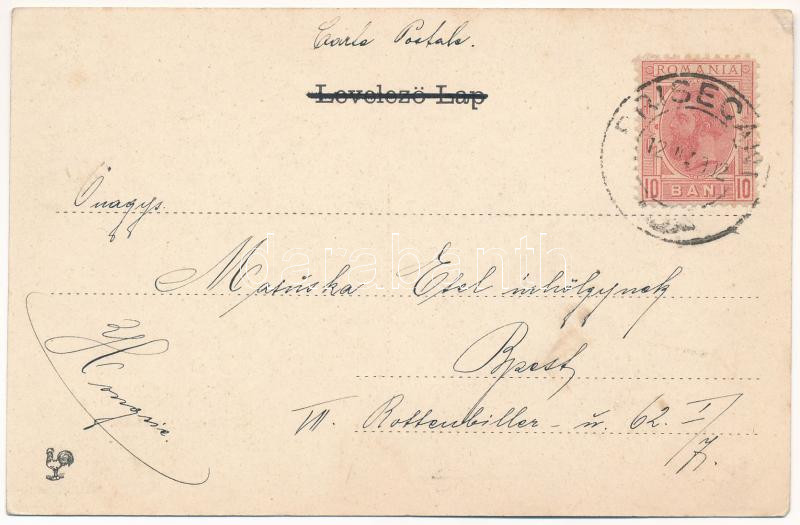 Carte Postale.
Levelező Lap
ROMANIA
10 BANI 10
Önagys.
Matúska Etel úrhölgynek
Bpest
VII. Rottenbiller - u. 62. I/7.
Hongrie.
darabanth